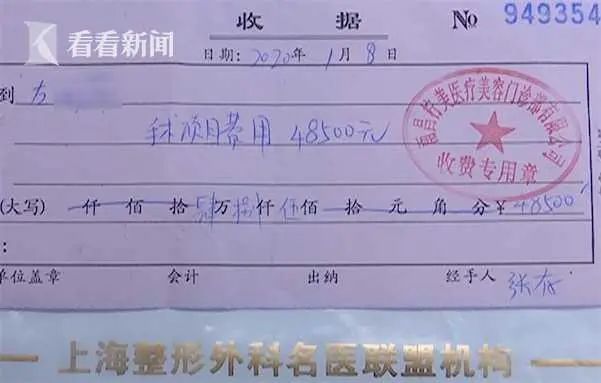 看看新闻
收 据 № 949354
日期：2020年1月8日
到 方
手术项目费用 48500元
美医疗美容门诊部有限公司
收费专用章
(大写) 仟 佰 拾 肆 万 捌 仟 伍 佰 拾 元 角 分 ¥ 48500
：
单位盖章 会计 出纳 经手人 张存
上海整形外科名医联盟机构